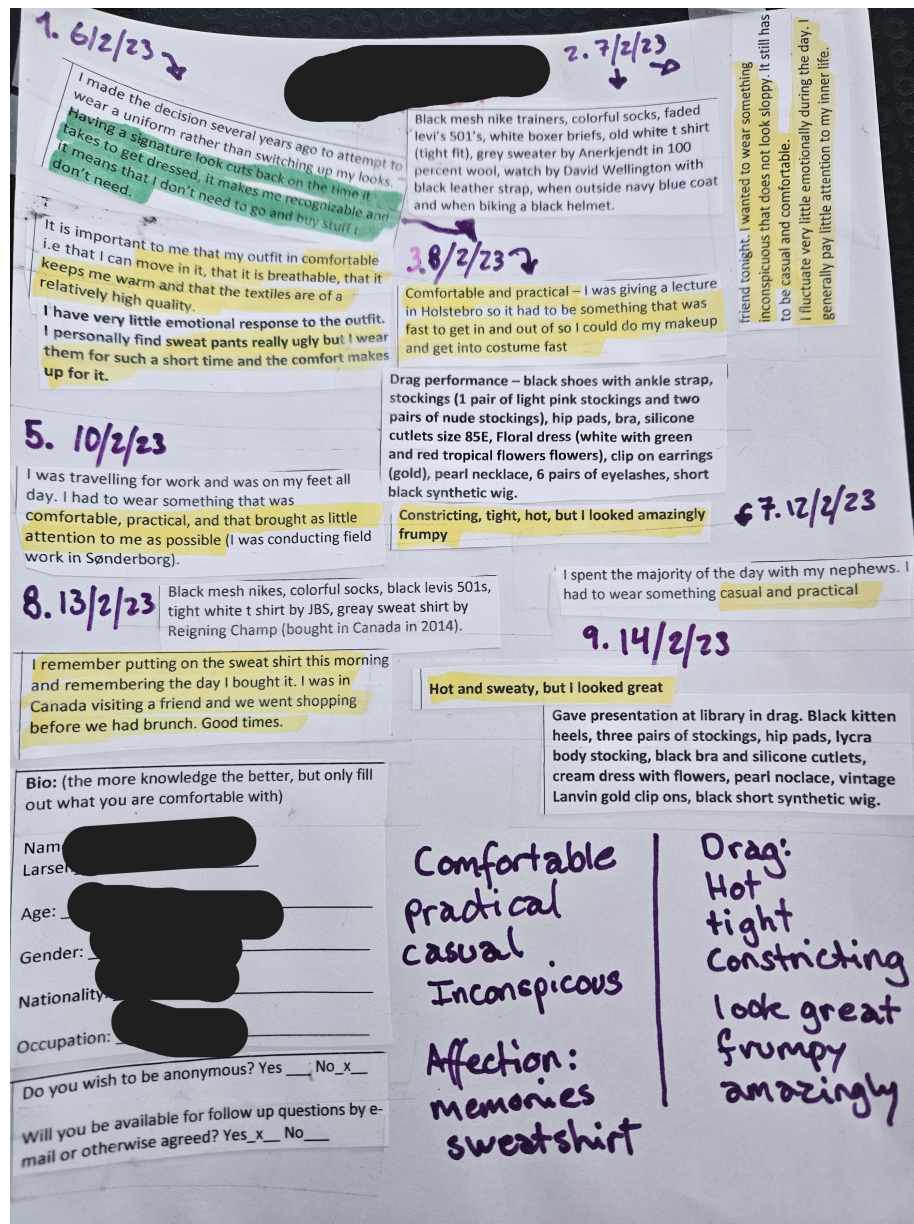 1. 6/2/23
I made the decision several years ago to attempt to
wear a uniform rather than switching up my looks.
Having a signature look cuts back on the time it
takes to get dressed, it makes me recognizable and
it means that I don't need to go and buy stuff I
don't need.
It is important to me that my outfit in comfortable
i.e that I can move in it, that it is breathable, that it
keeps me warm and that the textiles are of a
relatively high quality.
I have very little emotional response to the outfit.
I personally find sweat pants really ugly but I wear
them for such a short time and the comfort makes
up for it.
2. 7/2/23
Black mesh nike trainers, colorful socks, faded
levi's 501's, white boxer briefs, old white t shirt
(tight fit), grey sweater by Anerkjendt in 100
percent wool, watch by David Wellington with
black leather strap, when outside navy blue coat
and when biking a black helmet.
friend tonight. I wanted to wear something
inconspicuous that does not look sloppy. It still has
to be casual and comfortable.
I fluctuate very little emotionally during the day. I
generally pay little attention to my inner life.
3. 8/2/23
Comfortable and practical – I was giving a lecture
in Holstebro so it had to be something that was
fast to get in and out of so I could do my makeup
and get into costume fast
Drag performance – black shoes with ankle strap,
stockings (1 pair of light pink stockings and two
pairs of nude stockings), hip pads, bra, silicone
cutlets size 85E, Floral dress (white with green
and red tropical flowers flowers), clip on earrings
(gold), pearl necklace, 6 pairs of eyelashes, short
black synthetic wig.
Constricting, tight, hot, but I looked amazingly
frumpy
5. 10/2/23
I was travelling for work and was on my feet all
day. I had to wear something that was
comfortable, practical, and that brought as little
attention to me as possible (I was conducting field
work in Sønderborg).
7. 12/2/23
I spent the majority of the day with my nephews. I
had to wear something casual and practical
8. 13/2/23
Black mesh nikes, colorful socks, black levis 501s,
tight white t shirt by JBS, greay sweat shirt by
Reigning Champ (bought in Canada in 2014).
I remember putting on the sweat shirt this morning
and remembering the day I bought it. I was in
Canada visiting a friend and we went shopping
before we had brunch. Good times.
9. 14/2/23
Hot and sweaty, but I looked great
Gave presentation at library in drag. Black kitten
heels, three pairs of stockings, hip pads, lycra
body stocking, black bra and silicone cutlets,
cream dress with flowers, pearl noclace, vintage
Lanvin gold clip ons, black short synthetic wig.
Bio: (the more knowledge the better, but only fill
out what you are comfortable with)
Nam
Larsen
Age:
Gender:
Nationality
Occupation:
Do you wish to be anonymous? Yes ___ No_x__
Will you be available for follow up questions by e-
mail or otherwise agreed? Yes_x__ No___
Comfortable
practical
casual
Inconspicous
Affection:
memories
sweatshirt
Drag:
Hot
tight
Constricting
look great
frumpy
amazingly